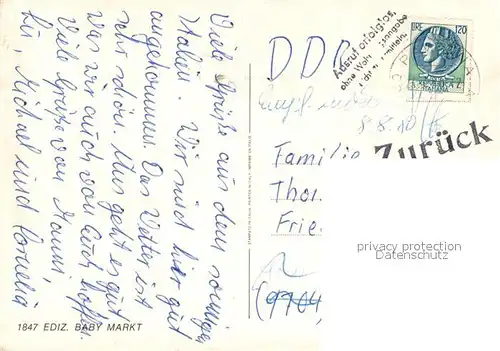 Viele Grüße aus dem sonnigen
Italien. Wir sind hier gut
angekommen. Das Wetter ist
sehr schön. Uns geht es gut
was wir auch von Euch hoffen.
Viele Grüße von Manni,
Michael und Cornelia
1847 EDIZ. BABY MARKT
DDR
Ausruf erfolglos,
ohne
LIRE 120
8.8.80
Zurück
Familie
Thor.
Frie.
privacy protection
Datenschutz